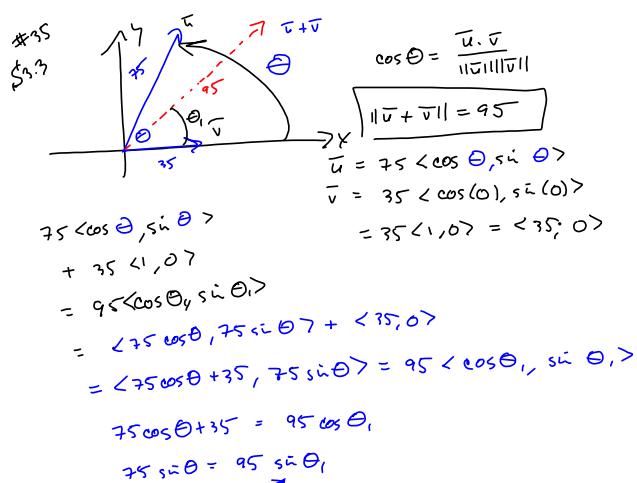 #35
§3.3
y
ū
ū + v̄
75
95
θ
θ
θ₁
v̄
35
x
cos θ = ū · v̄ / ||ū|| ||v̄||
||ū + v̄|| = 95
ū = 75 <cos θ, sin θ>
v̄ = 35 <cos(0), sin(0)>
= 35<1, 0> = <35, 0>
75 <cos θ, sin θ>
+ 35 <1, 0>
= 95<cos θ₁, sin θ₁>
= <75 cos θ, 75 sin θ> + <35, 0>
= <75 cos θ + 35, 75 sin θ> = 95 <cos θ₁, sin θ₁>
75 cos θ + 35 = 95 cos θ₁
75 sin θ = 95 sin θ₁